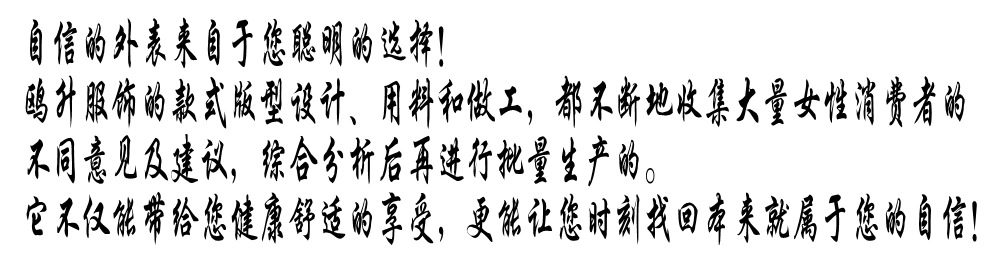 自信的外表来自于您聪明的选择!
鸥升服饰的款式版型设计、用料和做工，都不断地收集大量女性消费者的
不同意见及建议，综合分析后再进行批量生产的。
它不仅能带给您健康舒适的享受，更能让您时刻找回本来就属于您的自信!